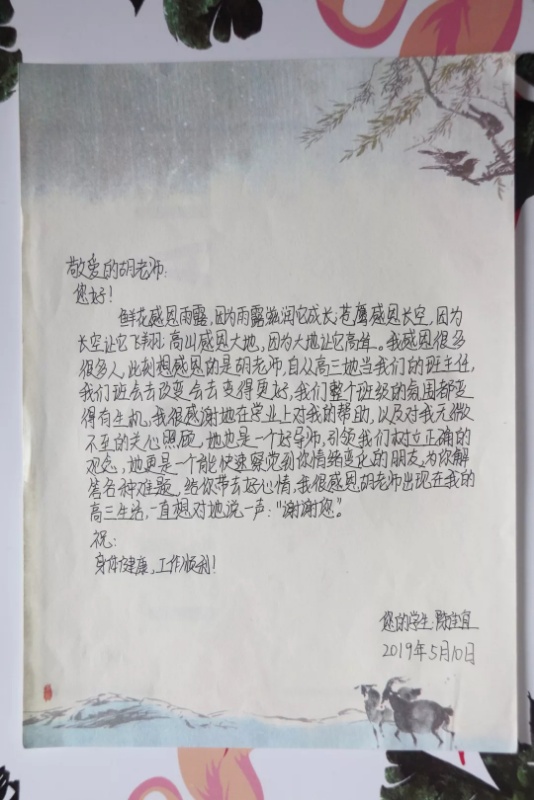 敬爱的胡老师:
您好!
鲜花感恩雨露,因为雨露滋润它成长;苍鹰感恩长空,因为
长空让它飞翔;高山感恩大地,因为大地让它高耸。我感恩很多
很多人,此刻想感恩的是胡老师,自从高三她当我们的班主任,
我们班会去改变会去变得更好,我们整个班级的氛围都变
得有生机,我很感谢她在学业上对我的帮助,以及对我无微
不至的关心照顾,她也是一个好导师,引领我们树立正确的
观念,她更是一个能快速察觉到你情绪变化的朋友,为你解
答各种难题,给你带去好心情,我很感恩胡老师出现在我的
高三生活,一直想对她说一声:“谢谢您”。
祝:
身体健康,工作顺利!
您的学生:宜
2019年5月10日